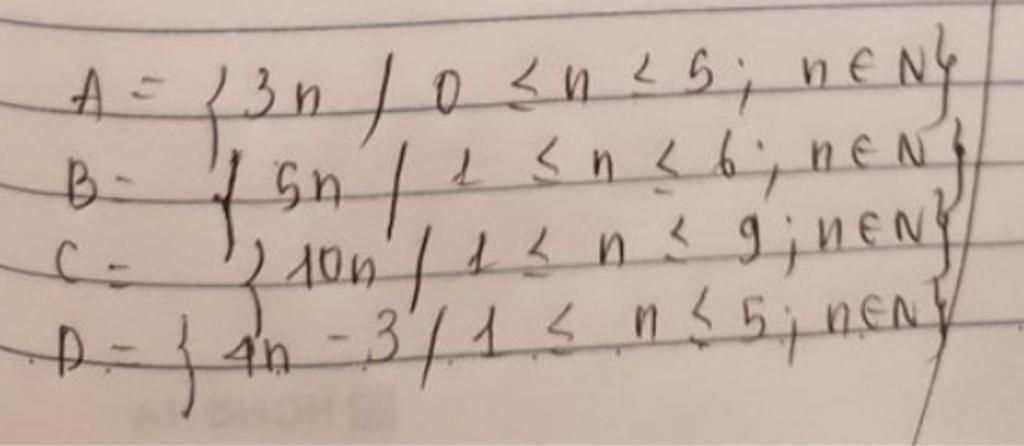 A = {3n / 0 ≤ n ≤ 5; n ∈ N}
B = {5n / 1 ≤ n ≤ 6; n ∈ N}
C = {10n / 1 ≤ n ≤ 9; n ∈ N}
D = {4n - 3 / 1 ≤ n ≤ 5; n ∈ N}